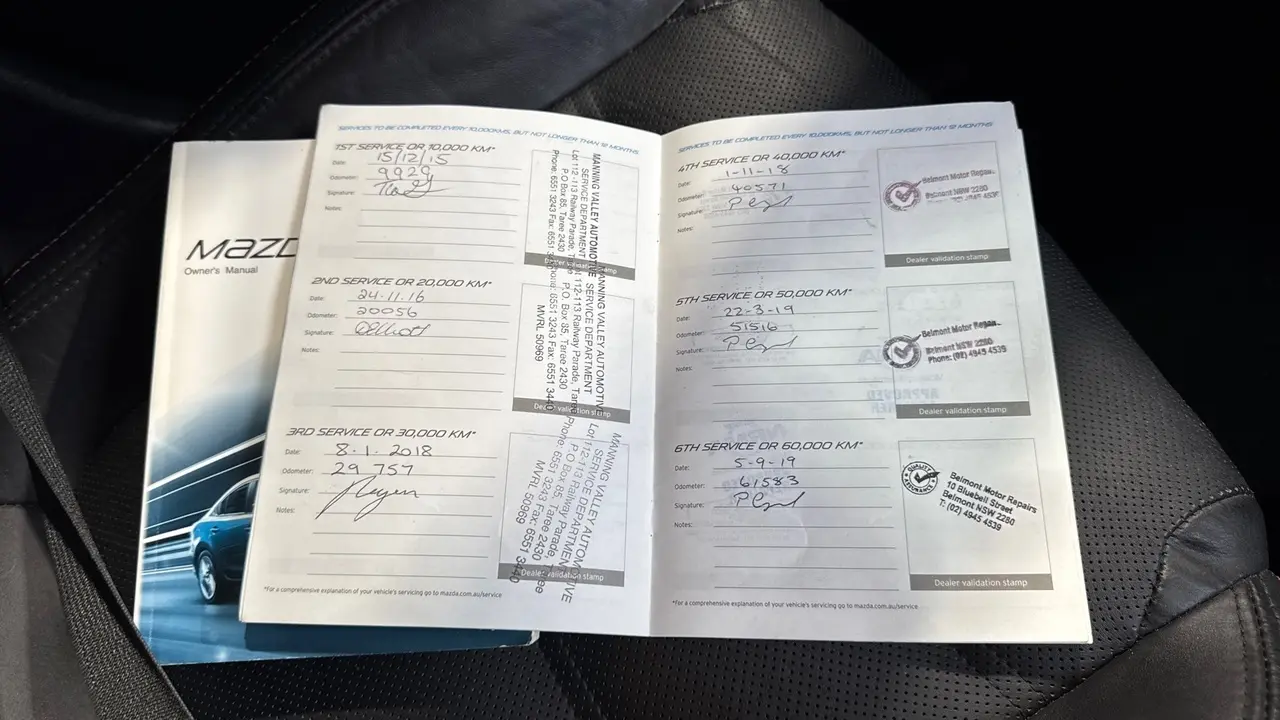 mazd
Owner's Manual
SERVICES TO BE COMPLETED EVERY 10,000KMS, BUT NOT LONGER THAN 12 MONTHS
1ST SERVICE OR 10,000 KM*
Date: 15/12/15
Odometer: 9929
Signature:
Notes:
MANNING VALLEY AUTOMOTIVE
SERVICE DEPARTMENT
Lot 112-113 Railway Parade, Taree
P.O Box 85, Taree 2430
Phone: 6551 3243 Fax: 6551 3440
Dealer validation stamp
2ND SERVICE OR 20,000 KM*
Date: 24.11.16
Odometer: 20056
Signature:
Notes:
MANNING VALLEY AUTOMOTIVE
SERVICE DEPARTMENT
Lot 112-113 Railway Parade, Taree
P.O. Box 85, Taree 2430
Phone: 6551 3243 Fax: 6551 3440
MVRL 50969
Dealer validation stamp
3RD SERVICE OR 30,000 KM*
Date: 8-1-2018
Odometer: 29 757
Signature:
Notes:
MANNING VALLEY AUTOMOTIVE
SERVICE DEPARTMENT
Lot 112-113 Railway Parade, Taree
P.O Box 85, Taree 2430
Phone: 6551 3243 Fax: 6551 3440
MVRL 50969
Dealer validation stamp
*For a comprehensive explanation of your vehicle's servicing go to mazda.com.au/service
SERVICES TO BE COMPLETED EVERY 10,000KMS, BUT NOT LONGER THAN 12 MONTHS
4TH SERVICE OR 40,000 KM*
Date: 1-11-18
Odometer: 40571
Signature:
Notes:
Belmont Motor Repair
Belmont NSW 2280
Dealer validation stamp
5TH SERVICE OR 50,000 KM*
Date: 22-3-19
Odometer: 51516
Signature:
Notes:
Belmont Motor Repair
Belmont NSW 2280
Phone: (02) 4945 4539
Dealer validation stamp
6TH SERVICE OR 60,000 KM*
Date: 5-9-19
Odometer: 61583
Signature:
Notes:
QUALITY
ASSURANCE
Belmont Motor Repairs
10 Bluebell Street
Belmont NSW 2280
T: (02) 4945 4539
Dealer validation stamp
*For a comprehensive explanation of your vehicle's servicing go to mazda.com.au/service